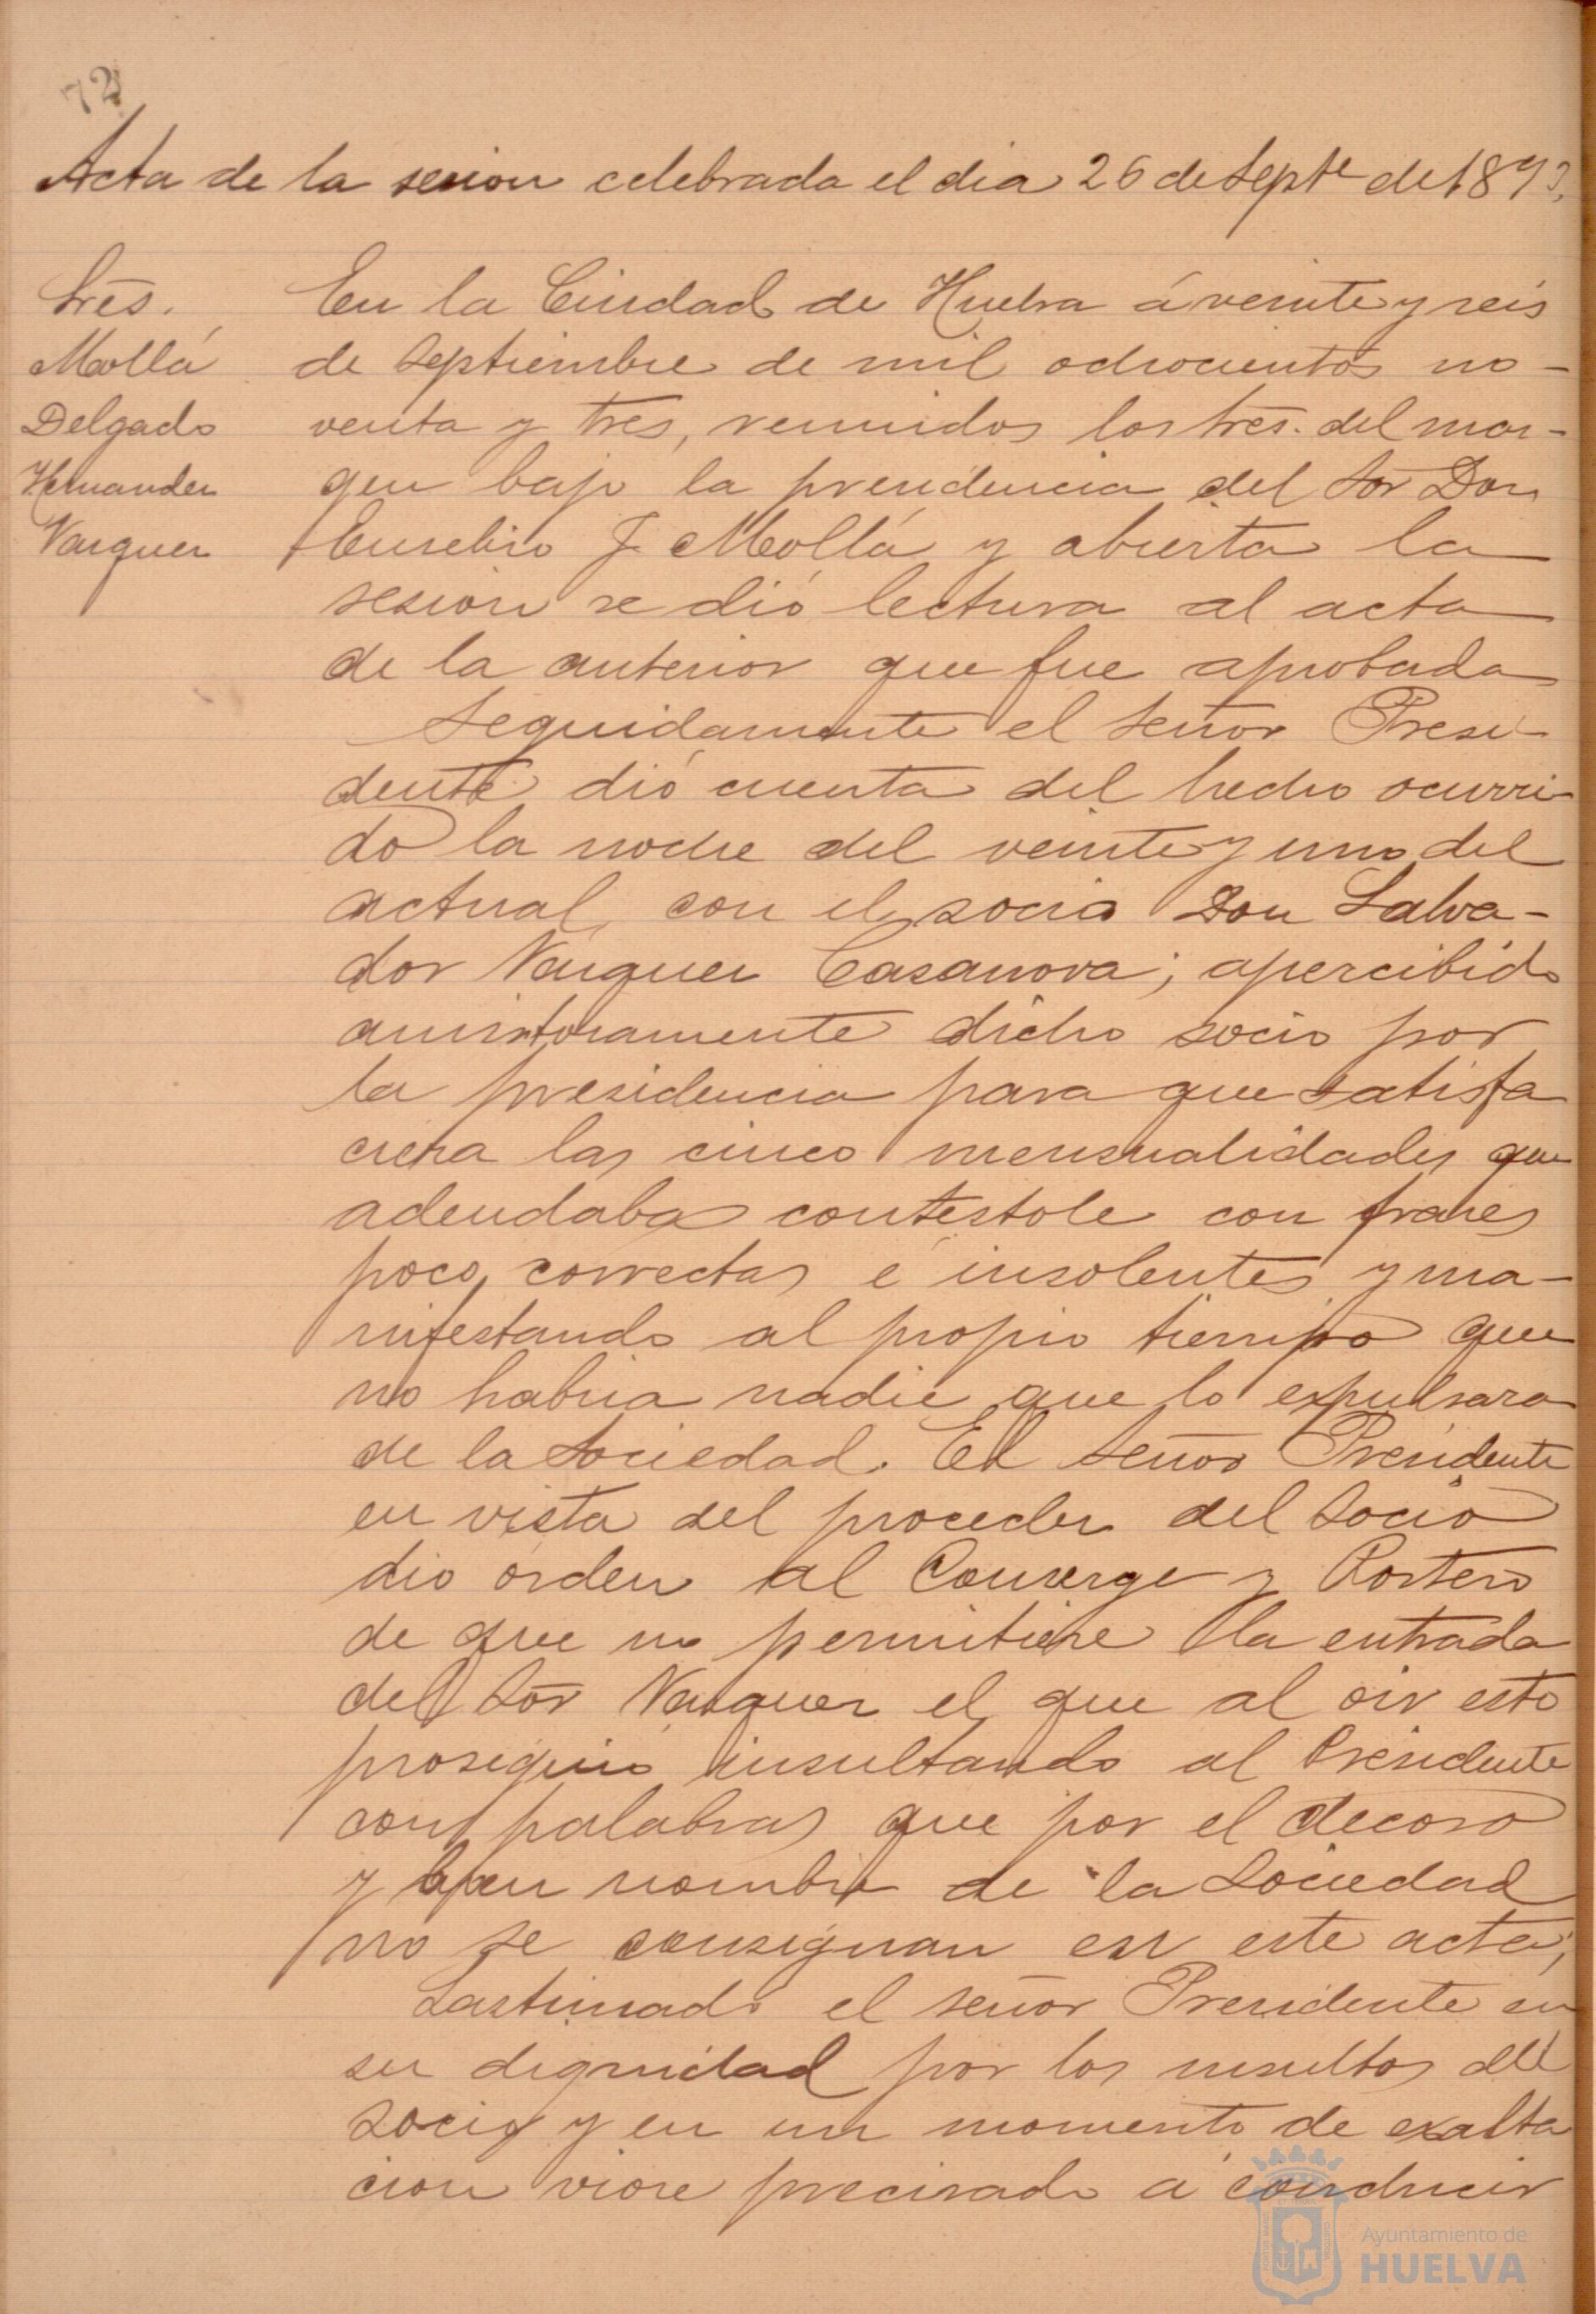 72
Acta de la sesion celebrada el dia 26 de Septe de 1893.
Sres.
Mollá
Delgado
Hernandez
Vazquez
En la Ciudad de Huelva á veinte y seis
de Septiembre de mil ochocientos no-
venta y tres, reunidos los Sres. del mar-
gen bajo la presidencia del Sor Don
Eusebio J. Mollá y abierta la
sesion se dió lectura al acta
de la anterior que fue aprobada
Seguidamente el Señor Presi-
dente dió cuenta del hecho ocurri-
do la noche del veinte y uno del
actual, con el socio Don Salva-
dor Vazquez Casanova; apercibido
amistosamente dicho socio por
la presidencia para que satisfa
ciera las cinco mensualidades que
adeudaba contestole con frases
poco correctas é insolentes y ma-
nifestando al propio tiempo que
no habria nadie que lo expulsara
de la Sociedad. El Señor Presidente
en vista del proceder del Socio
dio orden al Conserge y Portero
de que no permitiese la entrada
del Sor Vazquez el que al oir esto
prosiguió insultando al Presidente
con palabras que por el decoro
y buen nombre de la Sociedad
no se consignan en este acta;
Lastimado el señor Presidente en
su dignidad por los insultos del
socio y en un momento de exalta
cion viose precisado á conducir
Ayuntamiento de
HUELVA